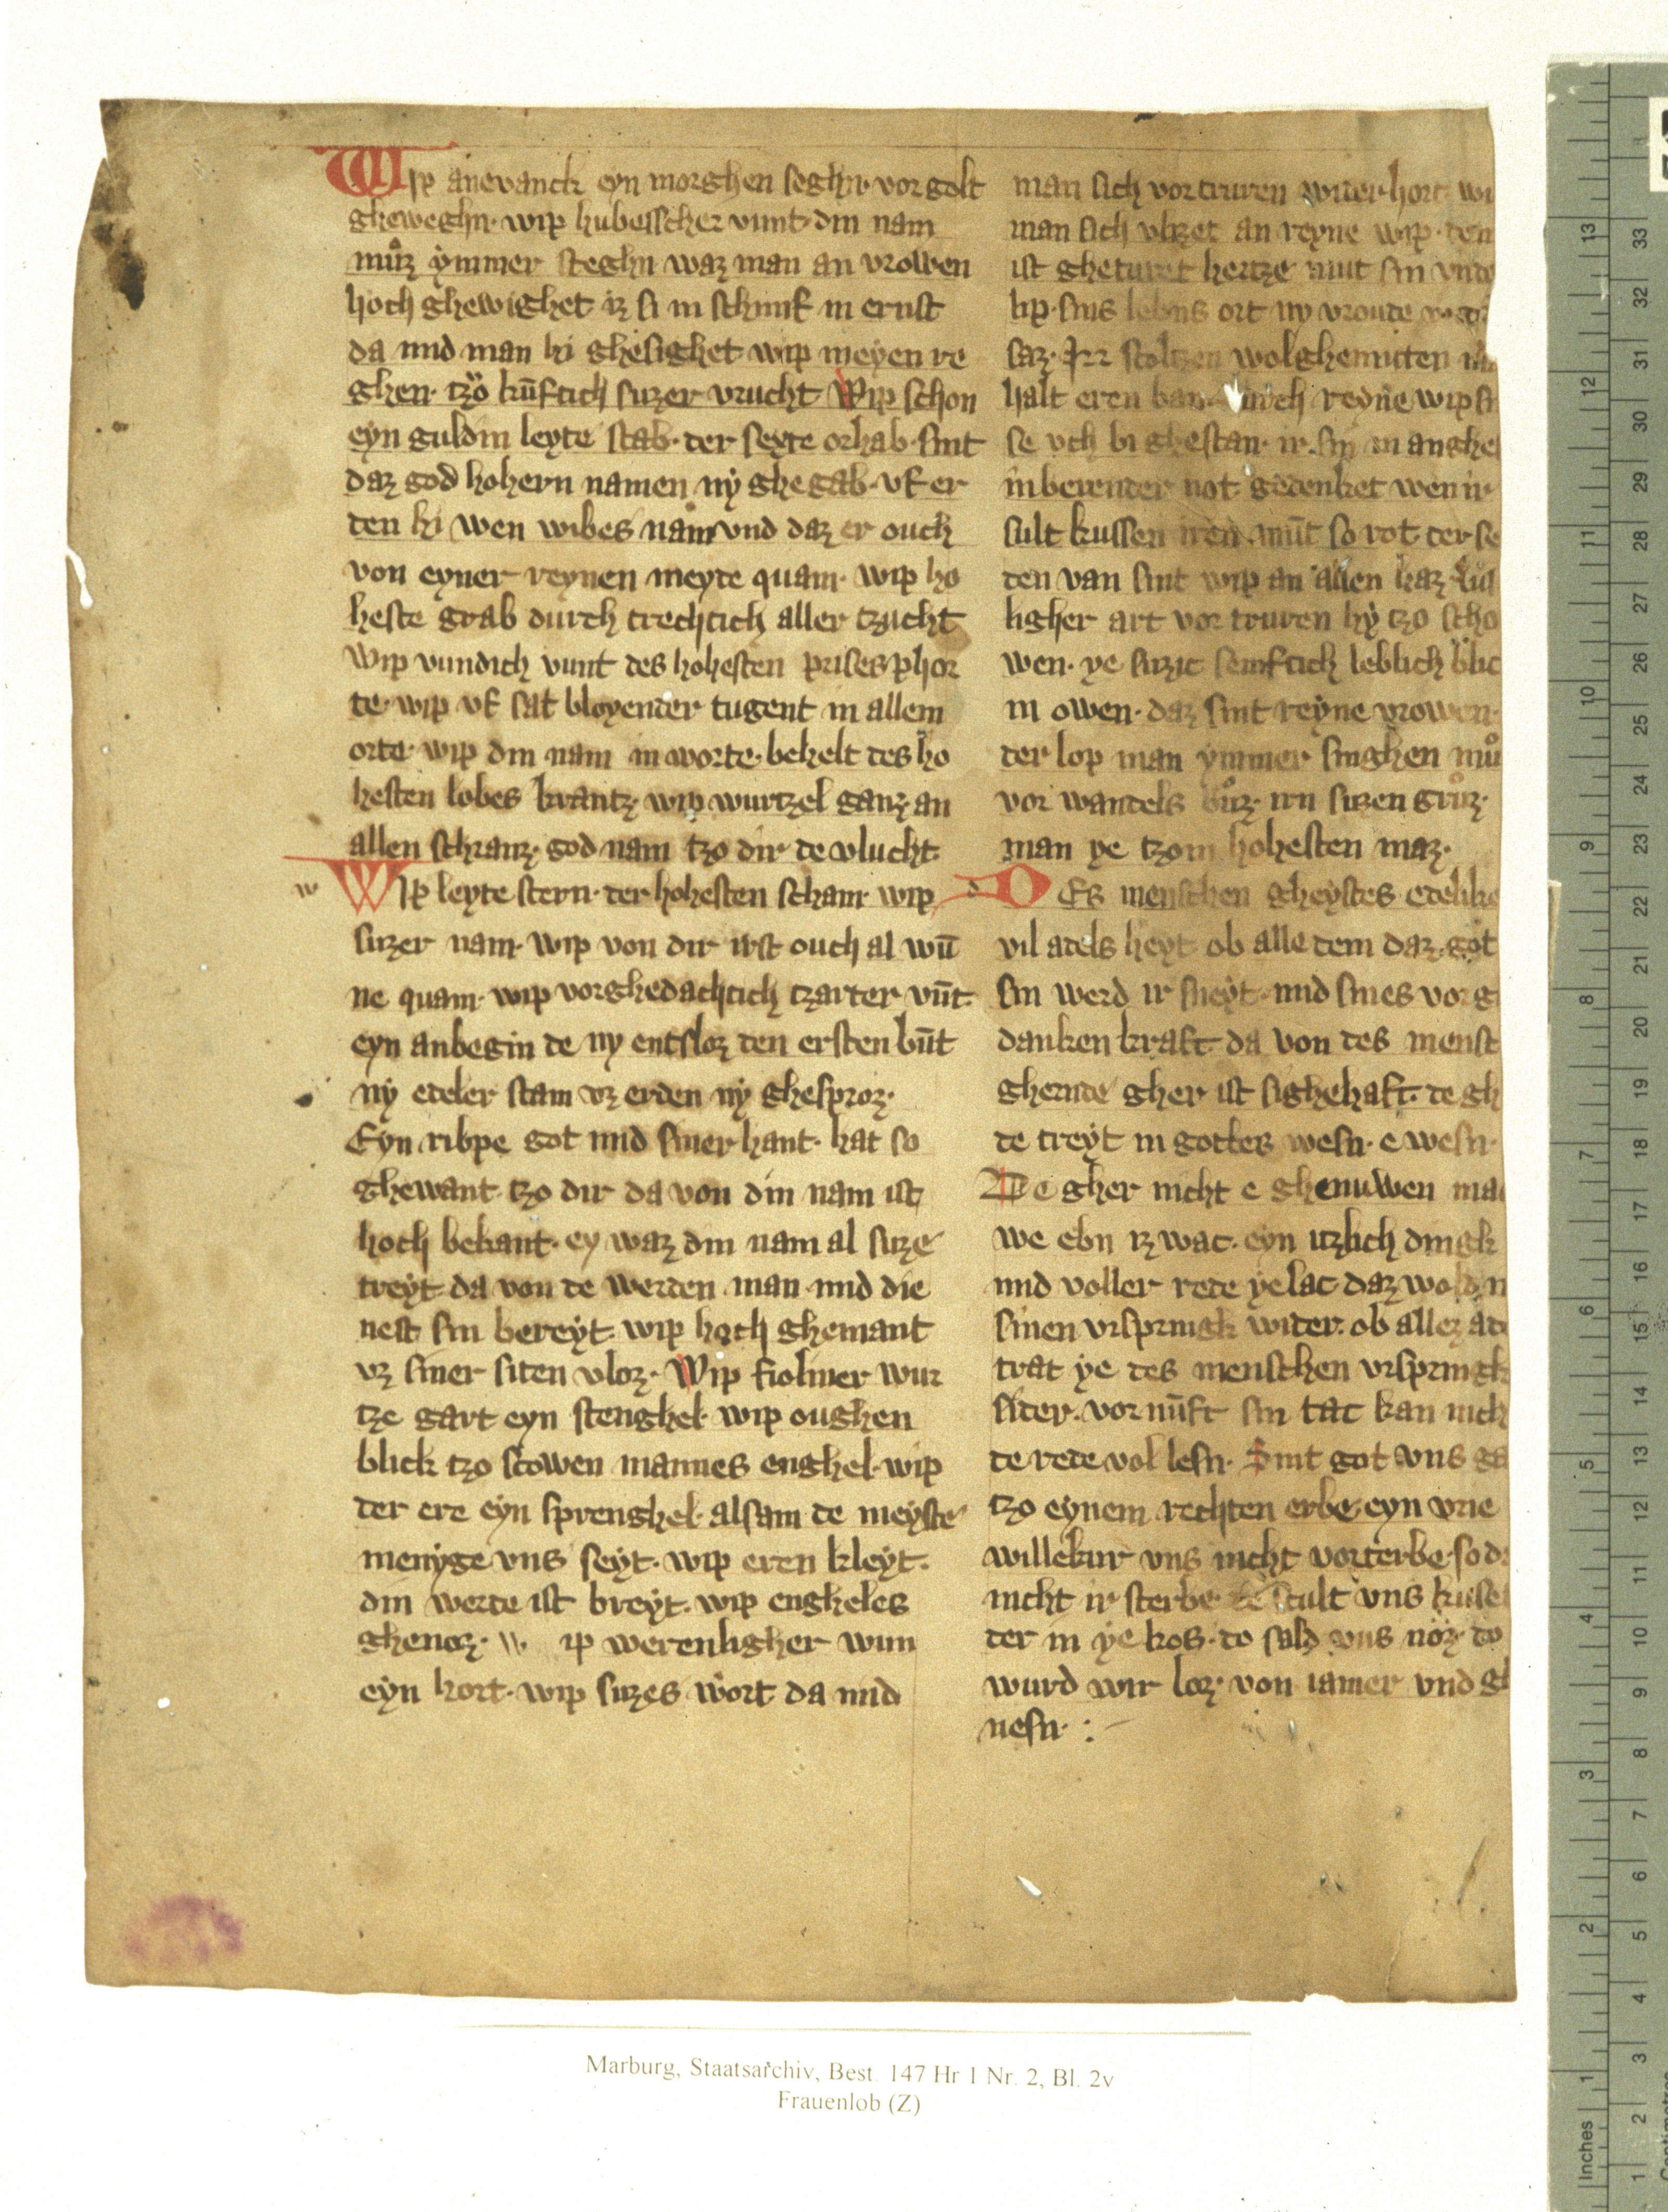 WIp anevanck eyn morghen seghn· vor golt
gheweghn· wip hubesscher vunt· din nam
muͦz ymmer steghn waz man an vrowen
hoch ghewighet iz si in schimf in ernst
da mid man hi ghesighet wip meyen re
ghen· tzo kūftich suzer vrucht Wip schon
eyn guldin leyte stab· der seyte orhab· sint
daz god hohern namen ny ghegab· uf er
den hi wen wibes nam vnd daz er ouch
von eyner reynen meyde quam· wip ho
heste grab durch trechtich aller tzucht
Wip vundich vunt des hohesten prises phor
te· wip uf sat bloyender tugent in allem
orte· wip din nam in worte· behelt des ho
hesten lobes krantz· wip wurtzel ganz· an
allen schranz· god nam tzo dir de vlucht·
w WIp leyte stern· der hohesten scham· wip
suzer nam· wip von dir irst ouch al wū
ne quam· wip vorghedachtich tzarter vūt·
eyn anbegin de ny entsloz den ersten būt
ny edeler stam vz erden ny ghesproz·
Eyn ribpe got mid siner hant· hat so
ghewant· tzo dir da von din nam ist
hoch bekant· ey waz din nam al suze
treyt da von de werden man mid die
nest sin bereyt· wip hoch ghenant
vz siner siten vloz· Wip fioliner wur
tze gart eyn stenghel· wip oughen
blick tzo scowen mannes enghel· wip
der ere eyn sprenghel· alsam de meyste
menyge vns seyt· wip eren kleyt·
din werde ist breyt· wip engheles
ghenoz· w ip werenligher wun
eyn hort· wip suzes wort da mid
man sich vor truren wider hort wi
man sich vlizet an reyne wip· den
ist gheturet hertze mut sin vnde
lip· sins lebns ort ny vroude
saz· Irr stoltzen wolghemuten
halt eren ban· durch reyne wip
se uch bi ghestan· ir sin in anghe
inberender not gedenket wen ir
sult kussen iren mūt so rot der se
den van sint wip an allen haz
ligher art vor truren hy tzo scho
wen· ye suzit semftich leblich blic
in owen· daz sint reyne vrowen·
der lop man ymmer singhen muͦ
vor wandels buͦz· irn suzen gruͦz·
man ye tzom hohesten maz·
d DEs menschen gheystes edelike
vil adels heyt ob alle dem daz got
sin werd ir sneyt· mid sines vor g
danken kraft· da von des mensc
ghernde gher ist sighehaft· de gh
de treyt in gottes wesn· e wesn·
De gher nicht e ghenuwen mac
we ebn iz wac· eyn itzlich dingk
mid voller rede ye lac daz wold
sinen vrspringk wider· ob allez ad
trat ye des menschen vrspringk
sider· vornūft sin tat kan nich
de rede vol lesn· Sint got vns ga
tzo eynem rechten erbe· eyn vrie
willekur vns nicht vorterbe· so d
nicht ir sterbe· de scult vns kuse
der in ye kos· do sald vns noz· do
wurd wir loz· von iamer vnd gh
nesn· :
Marburg, Staatsarchiv, Best. 147 Hr 1 Nr. 2, Bl. 2v
Frauenlob (Z)
Inches
1 2 3 4 5 6 7 8 9 10 11 12 13
1 2 3 4 5 6 7 8 9 10 11 12 13 14 15 16 17 18 19 20 21 22 23 24 25 26 27 28 29 30 31 32 33